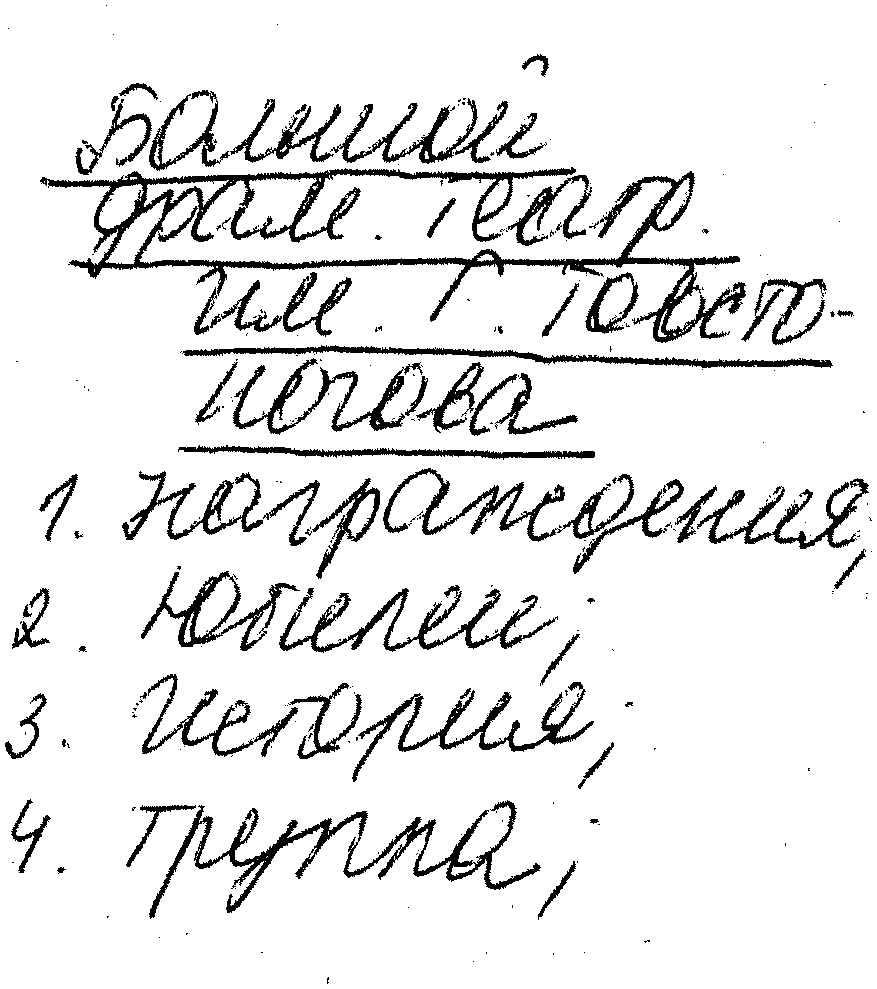 Большой
драм. театр.
им. Г. Товсто-
ногова
1. Награждения,
2. Юбилеи;
3. История;
4. Труппа;